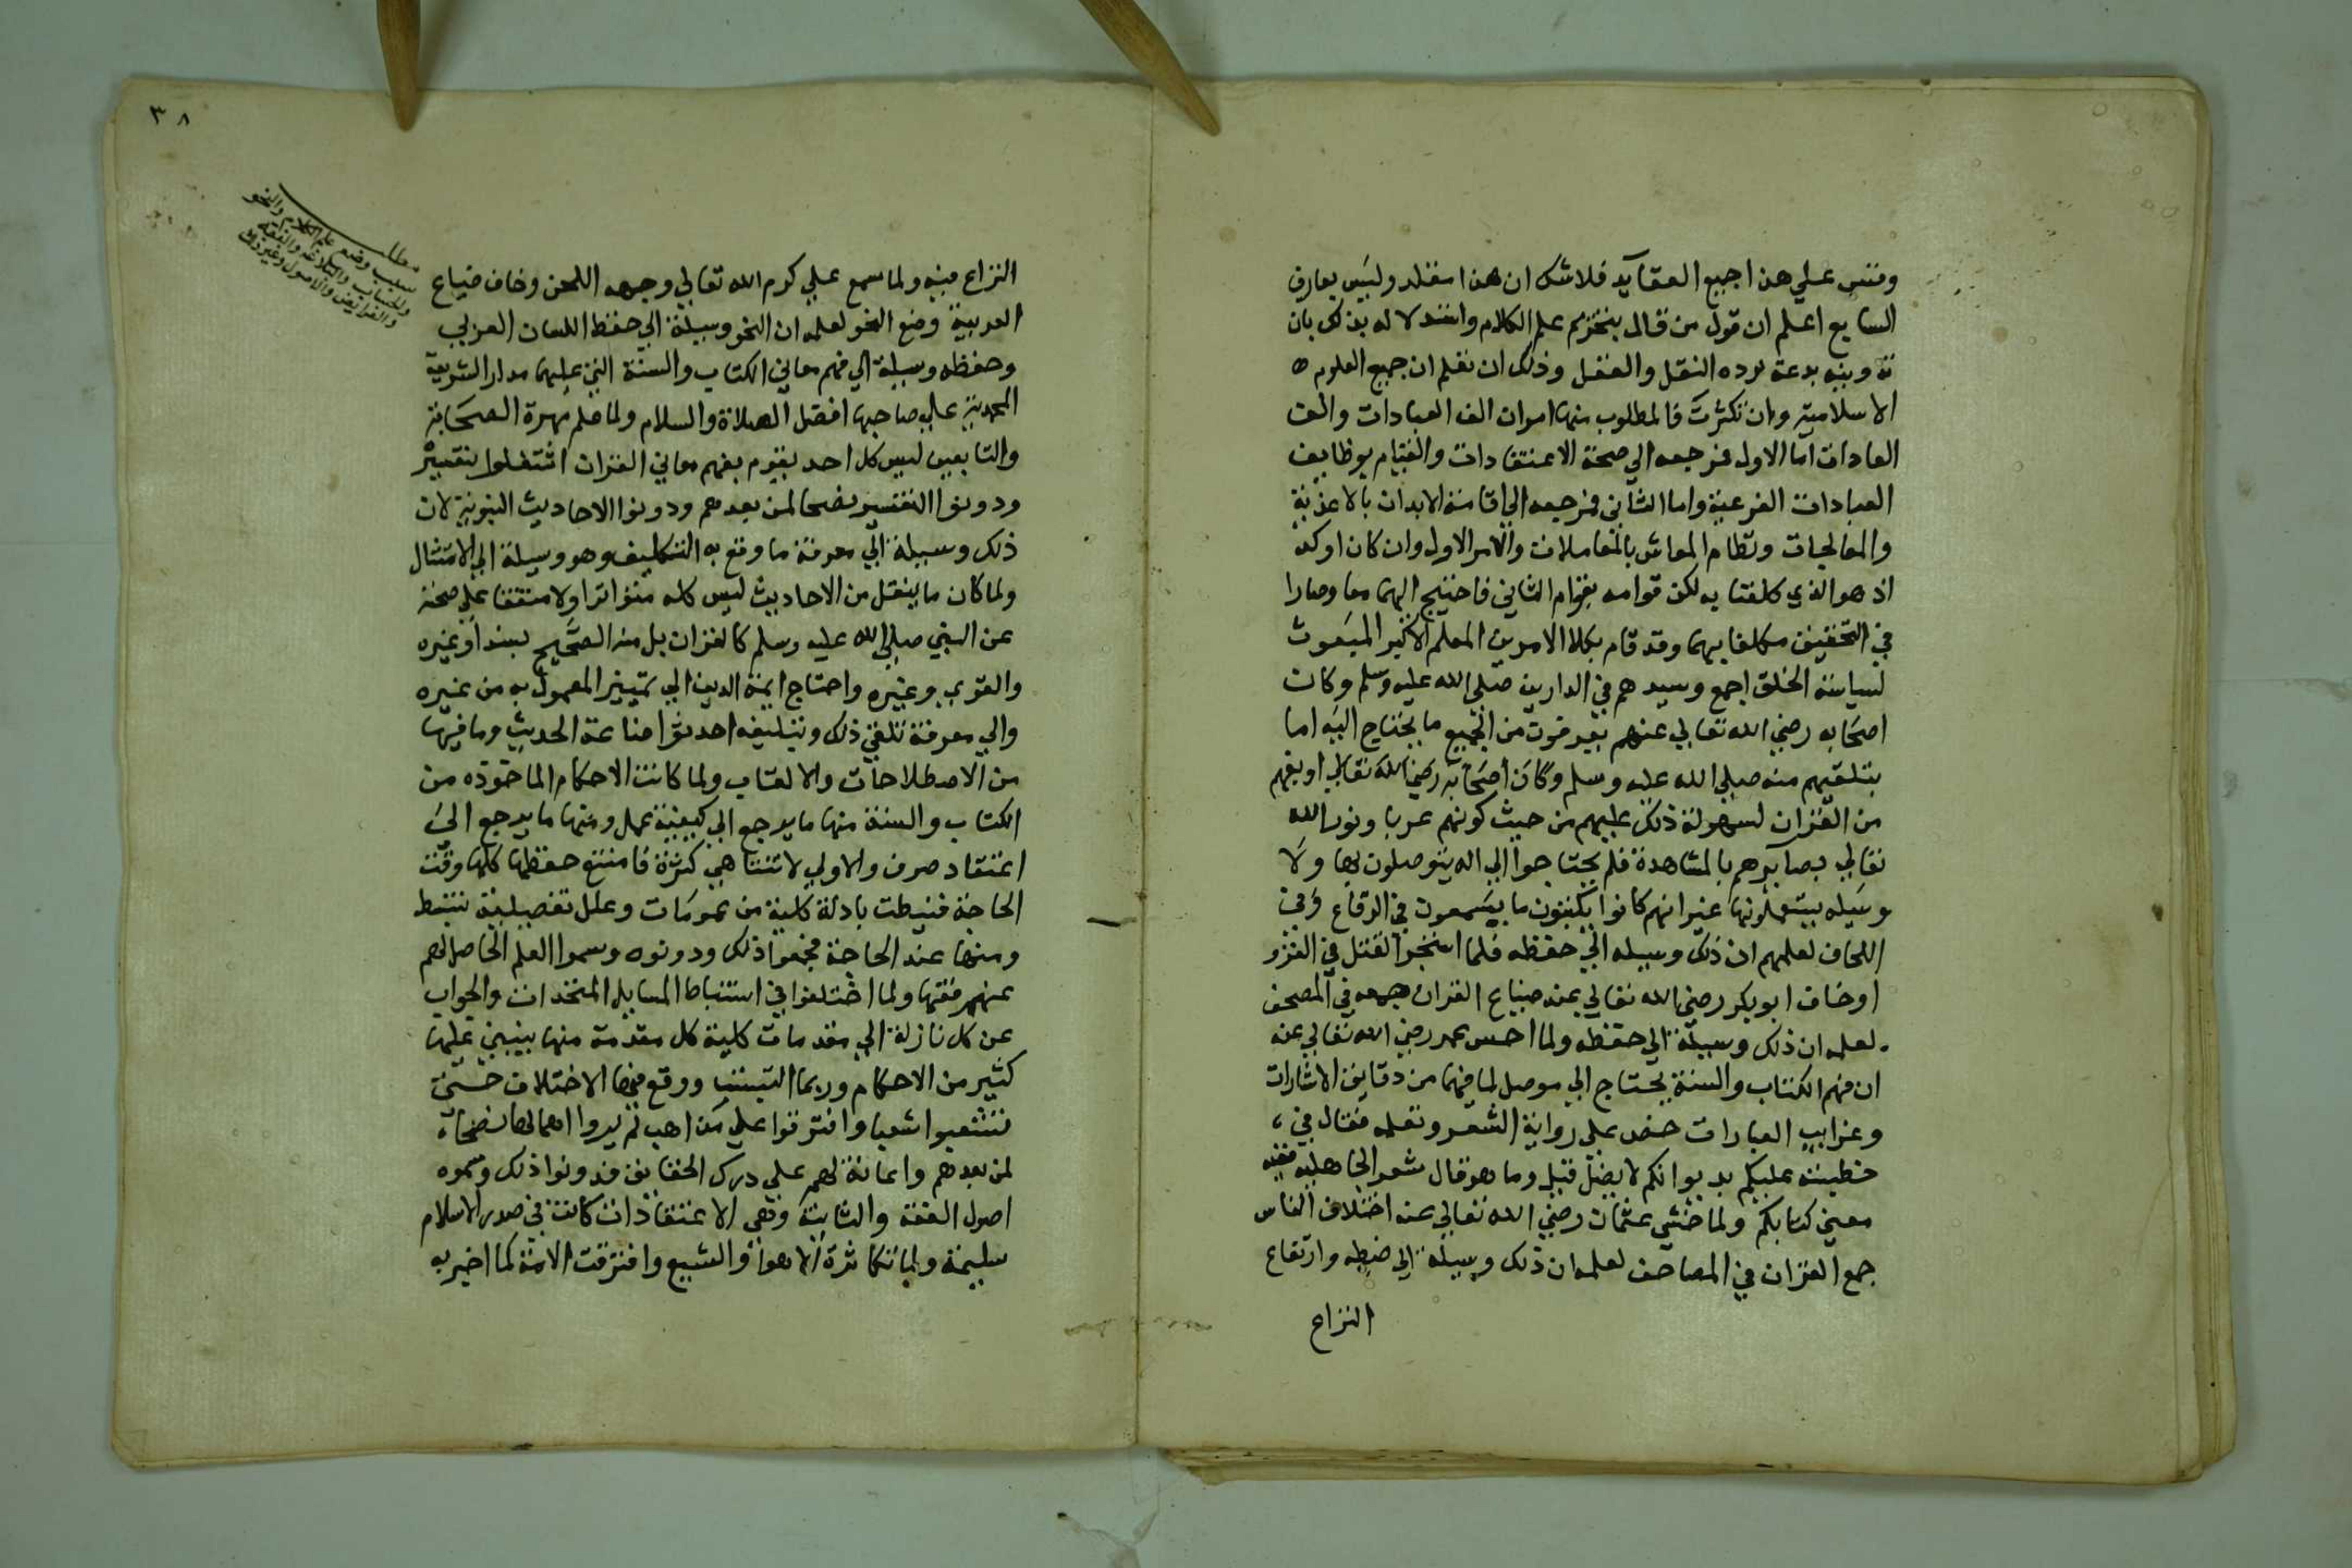 وقس علي هذا جميع العقايد فلا شك ان هذا مقلد وليس بعارف
السابع اعلم ان قول من قال بتحريم علم الكلام واستدلاله بذلك بان
تدوينه بدعة يرده النقل والعقل وذلك ان تعلم ان جميع العلوم ه
الاسلامية وان تكثرت فالمطلوب منها اموان الف العبادات والف
العادات اما الاول فمرجعه الي صحة الاعتقادات والقيام بوظايف
العبادات الفرعية واما الثاني فمرجعه الي اقامة الابدان بالاغذية
والمعالجات ونظام المعاش بالمعاملات والامر الاول وان كان اوكد
اذ هو الذي كلفنا به لكن قوامه بقوام الثاني فاحتيج اليهما معا وصارا
في التحقيق مكلفا بهما وقد قام بكلا الامرين المعلم الاكبر المبعوث
لسياسة الخلق اجمع وسيدهم في الدارين صلي الله عليه وسلم وكان
اصحابه رضي الله تعالي عنهم بغير قوت من الجميع ما يحتاج اليه اما
بتلقيهم منه صلي الله عليه وسلم وكان اصحابه رضي الله تعالي او بفهم
من القران لسهولة ذلك عليهم من حيث كونهم عربا ونور الله
تعالي بصايرهم بالمشاهدة فلم يحتاجوا الي اله يتوصلون بها ولا
وسيله يستعملونها غير انهم كانوا يكتبون ما يسمعون في الرقاع وفي
اللحاف لعلمهم ان ذلك وسيله الي حفظه فلما استحر القتل في الغزو
اوخاف ابو بكر رضي الله تعالي عنه ضياع القران جمعه في المصحف
لعلمه ان ذلك وسيلة الي حفظه ولما احس عمر رضي الله تعالي عنه
ان فهم الكتاب والسنة يحتاج الي موصل لما فيهما من دقايق الاشارات
وغرايب العبارات حض علي رواية الشعر وتعلمه فقال في
خطبته عليكم بديوانكم لا يضل قيل وما هو قال شعر الجاهليه ففيه
معني كتابكم ولما خشي عثمان رضي الله تعالي عنه اختلاف الناس
جمع القران في المصاحف لعلمه ان ذلك وسيلة الي ضبطه وارتفاع
النزاع
٣٨
مطلب
سبب وضع علم الكلام والنحو
والحساب والبلاغة والفقه
والفرايض والاصول وغير ذلك
النزاع فيه ولما سمع علي كرم الله تعالي وجهه اللحن وخاف ضياع
العربية وضع النحو لعلمه ان النحو وسيلة الي حفظ اللسان العربي
وحفظه وسيلة الي فهم معاني الكتاب والسنة التي عليهما مدار الشريعة
المحمدية علي صاحبها افضل الصلاة والسلام ولما علم مهرة الصحابة
والتابعين ليس كل احد يقوم بفهم معاني القران اشتغلوا بتفسيره
ودونوا التفسير نصحا لمن بعدهم ودونوا الاحاديث النبوية لان
ذلك وسيلة الي معرفة ما وقع به التكليف وهو وسيلة الي الامتثال
ولما كان ما ينقل من الاحاديث ليس كله متواترا ولا متفقا علي صحته
عن النبي صلي الله عليه وسلم كالقران بل منه الصحيح بسند او غيره
والقوي وغيره واحتاج ايمة الدين الي تمييز المعمول به من غيره
والي معرفة تلقي ذلك وتبليغه احدثوا صناعة الحديث وما فيها
من الاصطلاحات والالقاب ولما كانت الاحكام الماخوذه من
الكتاب والسنة منها ما يرجع الي كيفية عمل ومنها ما يرجع الي
اعتقاد صرف والاولي لا تتناهي كثرة فامتنع حفظها كلها وقت
الحاجة فنيطت بادلة كلية من عمومات وعلل تفصيلية تستنبط
ومنها عند الحاجة فجمعوا ذلك ودونوه وسموا العلم الحاصل لهم
عنهم فقها ولما اختلفوا في استنباط المسايل المتخذات والجواب
عن كل نازلة الي مقدمات كلية كل مقدمة منها ينبني عليها
كثير من الاحكام وربما التبست ووقع فيها الاختلاف حتي
تشعبوا شعبا وافترقوا علي مذاهب لم يروا اهمالها نصحا
لمن بعدهم واعانة لهم علي درك الحقايق فدونوا ذلك وسموه
اصول الفقه والثانية وهي الاعتقادات كانت في صدر الاسلام
سليمة ولما تكاثرة الاهواء والشيع وافترقت الامة كما اخبر به